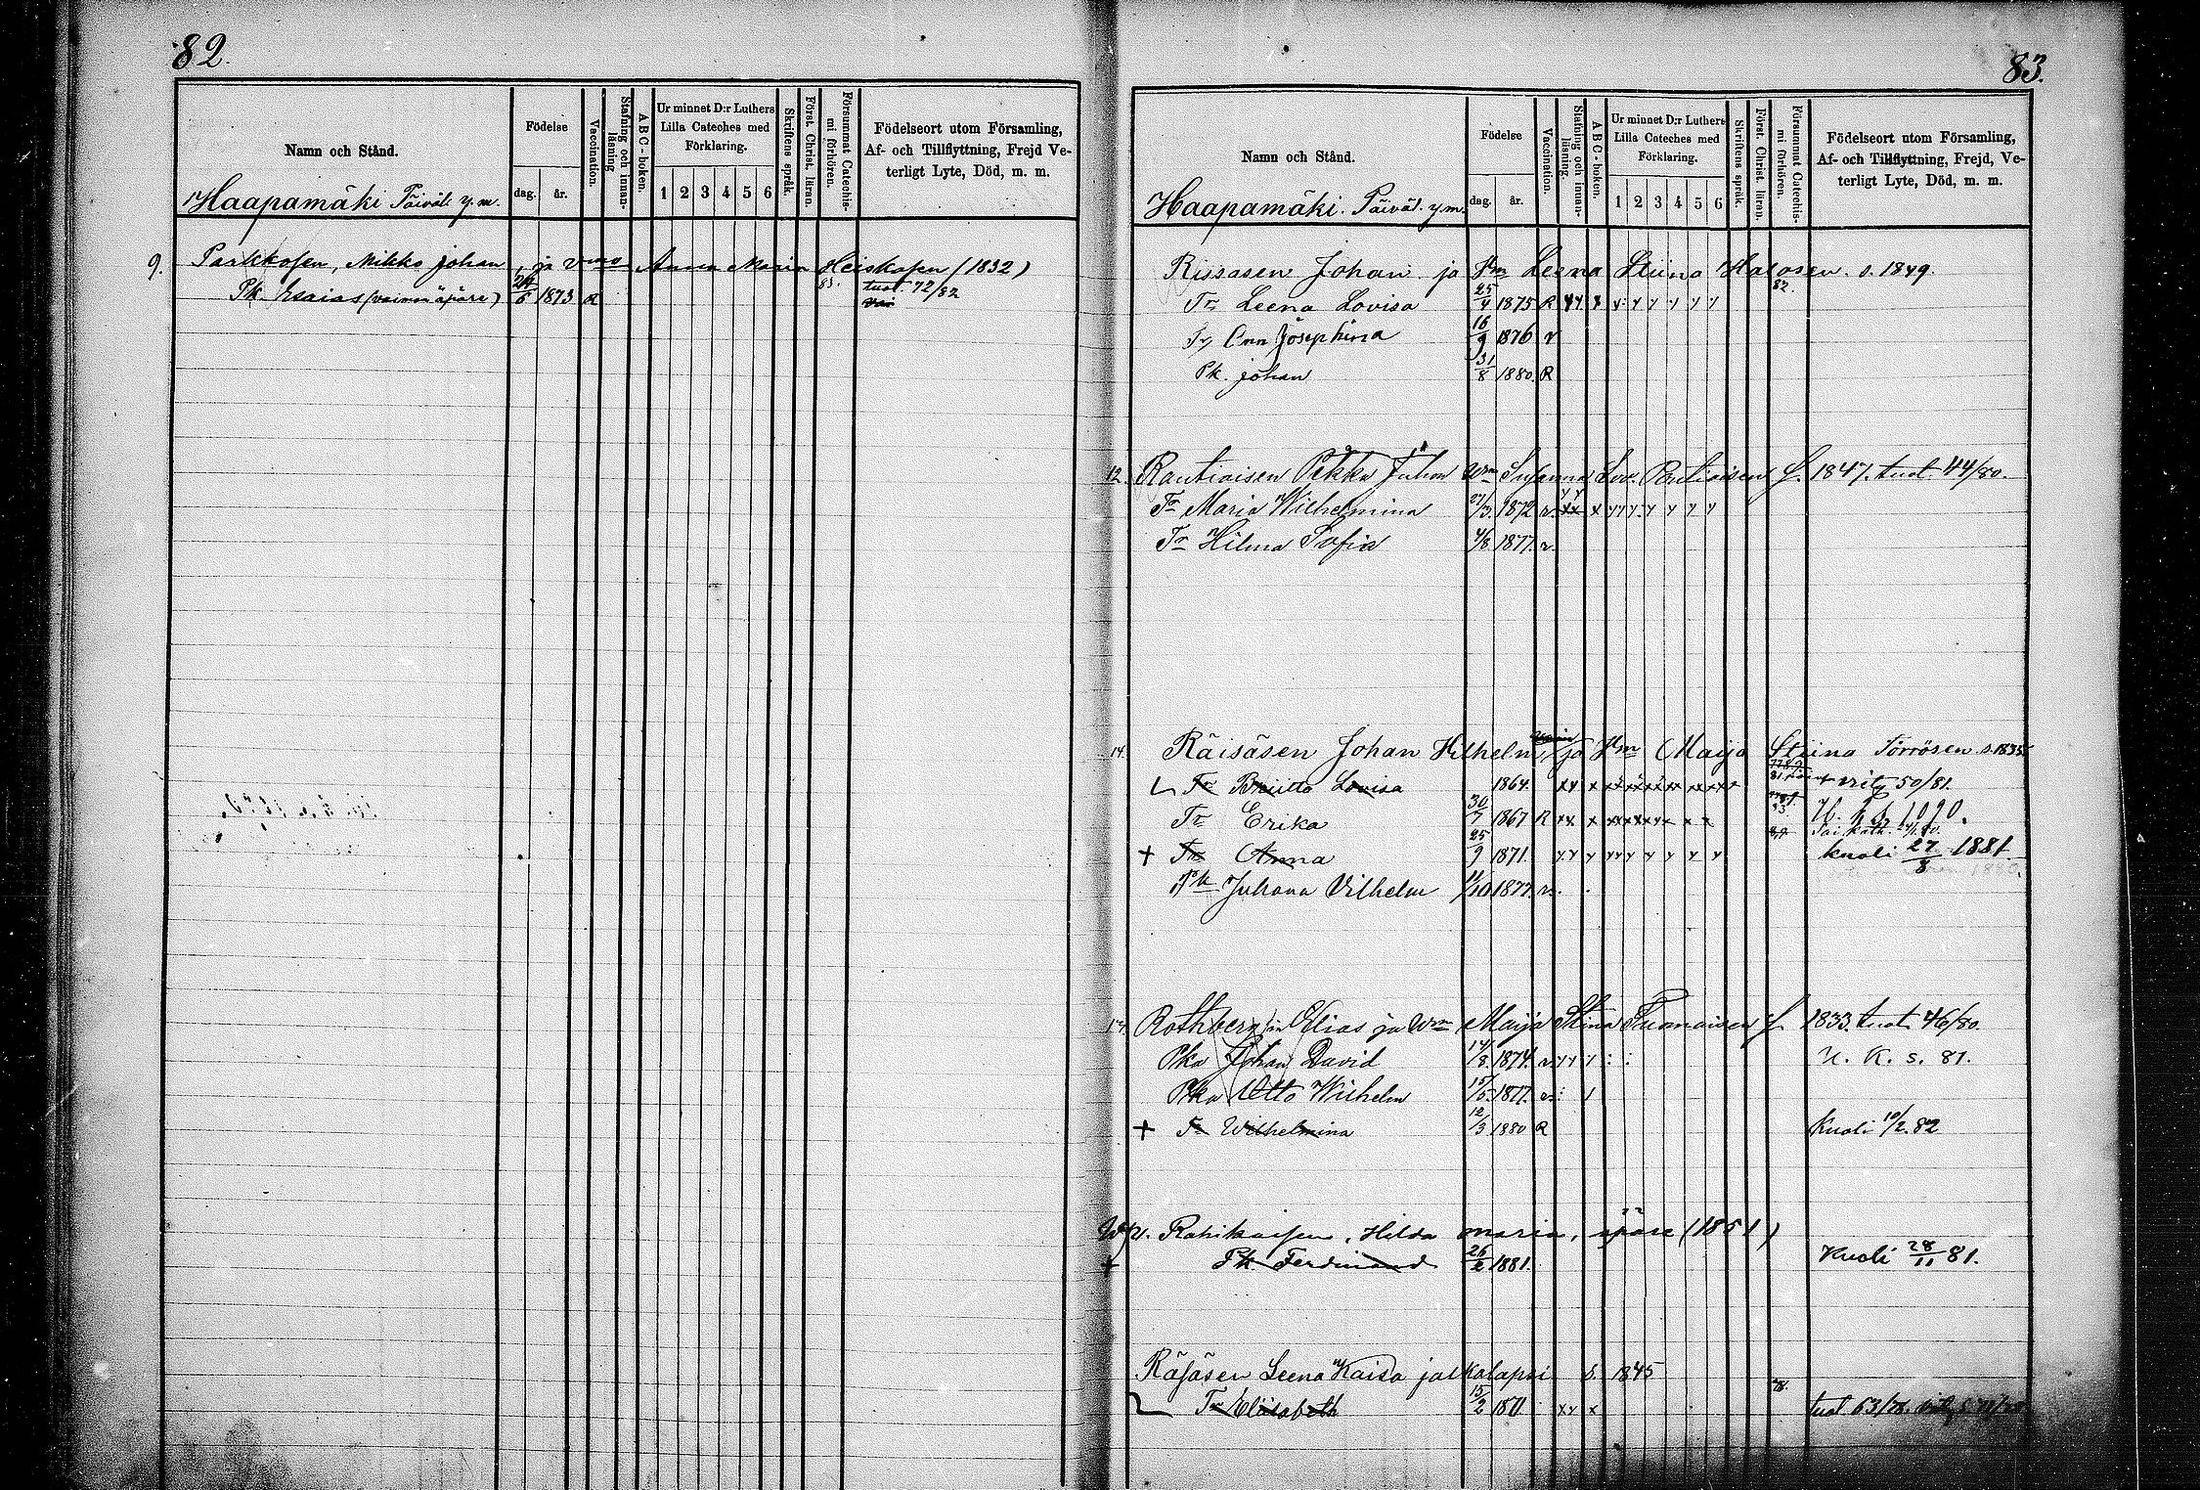 82.
Namn och Stånd.
Födelse
dag.
år.
Vaccination.
Stafning och innanläsning
ABC-boken.
Ur minnet D:r Luthers Lilla Cateches med Förklaring.
1 2 3 4 5 6
Skriftens språk.
Först. Christ. läran.
Försummat Catechismi förhören.
Födelseort utom Församling, Af- och Tillflyttning, Frejd Veterligt Lyte, Död, m. m.
Haapamäki Päiväl. y. m.
9. Parkkosen, Mikko Johan ja vmo Anna Maria Heiskasen (1832)
Pk. Esaias (vaimon äpärä) 24/5 1873 R 83. tuot. 72/82
83.
Namn och Stånd.
Födelse
dag.
år.
Vaccination.
Stafning och innanläsning.
ABC-boken.
Ur minnet D:r Luthers Lilla Cateches med Förklaring.
1 2 3 4 5 6
Skriftens språk.
Först. Christ. läran.
Försummat Catechismi förhören.
Födelseort utom Församling, Af- och Tillflyttning, Frejd, Veterligt Lyte, Död, m. m.
Haapamäki. Päiväl. y.m.
Rissasen Johan ja Wm Leena Stiina Halosen s. 1849.
Tr Leena Lovisa 25/4 1875 R
Tr Josephina 16/9 1876 r
Pk. Johan 31/8 1880. R
12. Rautiaisen Pekka Juhon Wm Susanna Lov. Rautiaisen S. 1847. tuot 44/80.
Tr Maria Wilhelmina 27/3. 1872 r.
Tr Hilma Sofia 4/8 1877. r.
14. Räisäsen Johan Wilhelm, ja Wm Maija Stiina Törrösen s. 1835
Tr Briitta Lovisa 1864. 50/81.
Tr Erika 30/7 1867 R
+ Tr Anna 25/9 1871. kuoli 27/8 1881.
Pk Juhana Vilhelm 11/10 1877. r.
17. Rothberg'in Elias ja Wm Maija Stina Tuomaisen S. 1833. tuot 46/80.
Pka Johan David 14/8. 1874. r. U. K. s. 81.
Pka Otto Wilhelm 15/5. 1877. r.
+ Tr Wilhelmina 12/3 1880 R Kuoli 10/2. 82
Rahikaisen, Hilda Maria, äpärä (1851)
+ Pk Ferdinand 26/2 1881. Kuoli 28/11 81.
Räsäsen Leena Kaisa jalkalapsi S. 1845
Tr Elisabeth 15/2 1871 78. tuot 63/78.